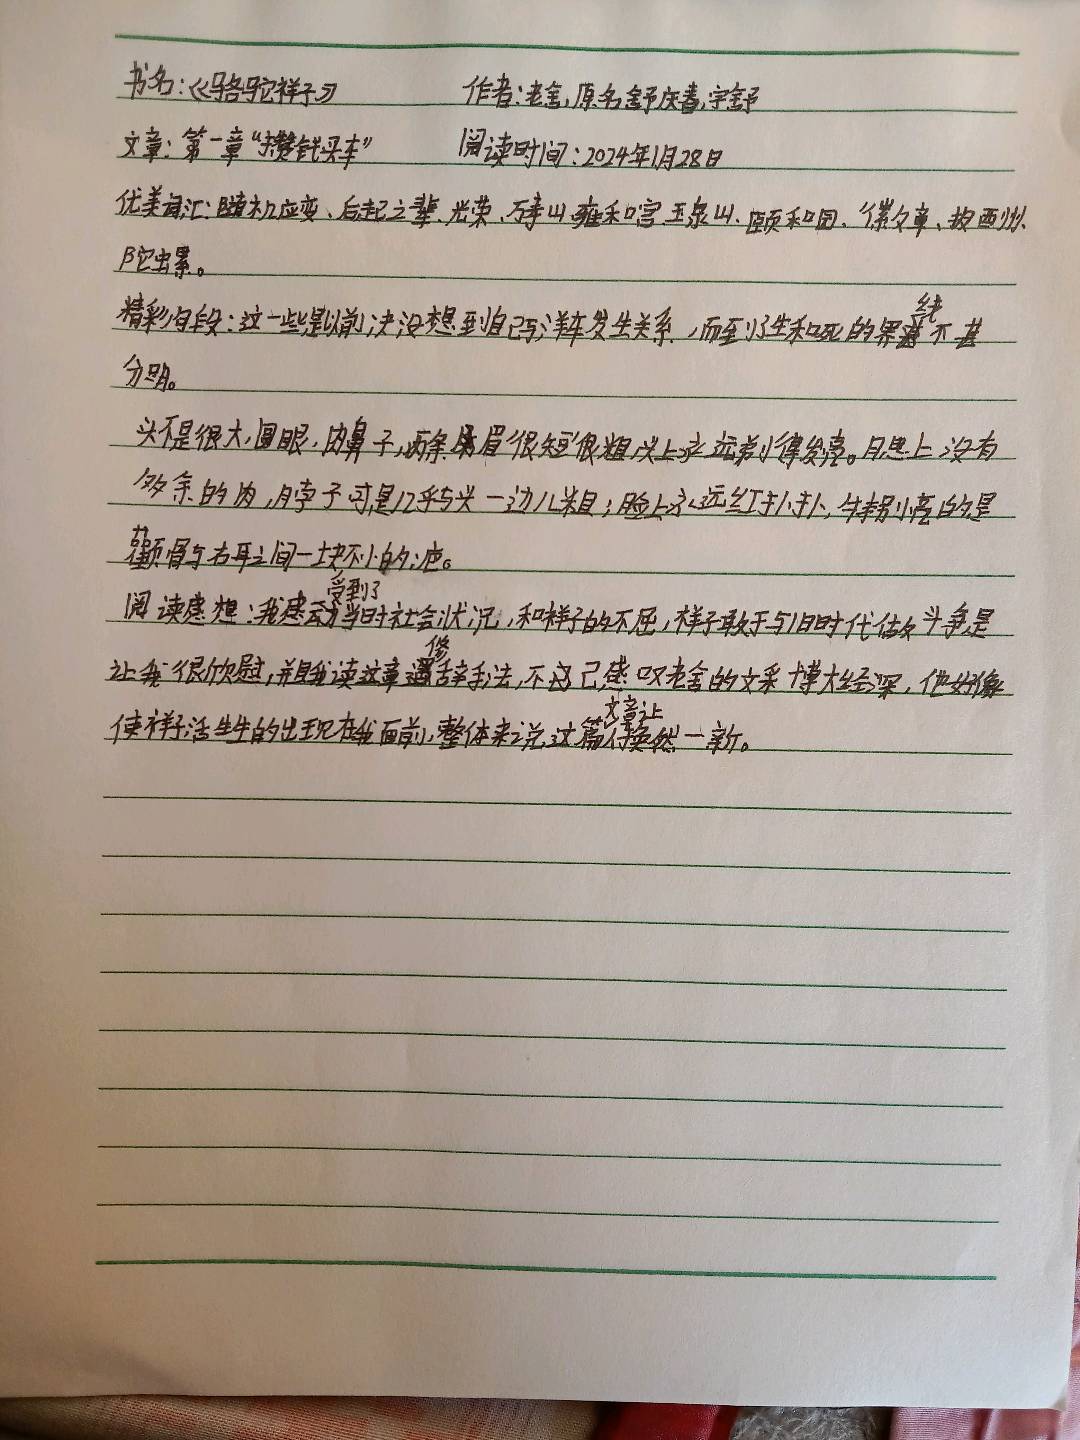 书名:《骆驼祥子》 作者:老舍,原名舒庆春,字舒
文章:第一章“攒钱买车” 阅读时间:2024年1月28日
优美词汇:随机应变、后起之辈、光荣、万寿山、雍和宫、玉泉山、颐和园、
陀虫累。
精彩句段:这一些是以前决没想到自己与洋车发生关系,而到了生和死的界线不甚
分明。
头不是很大,圆眼,肉鼻子,两条眉很短很粗,头上永远剃得发亮。腮上没有
多余的肉,脖子可是几乎与头一边儿粗;脸上永远红扑扑,特别亮的是
颧骨与右耳之间一块不小的疤。
阅读感想:我感受到了当时社会状况,和祥子的不屈,祥子敢于与旧时代做斗争是
让我很欣慰,并且我读这章修辞手法,不由己感叹老舍的文采博大经深,他好像
使祥子活生生的出现在我面前,整体来说,这篇文章让焕然一新。